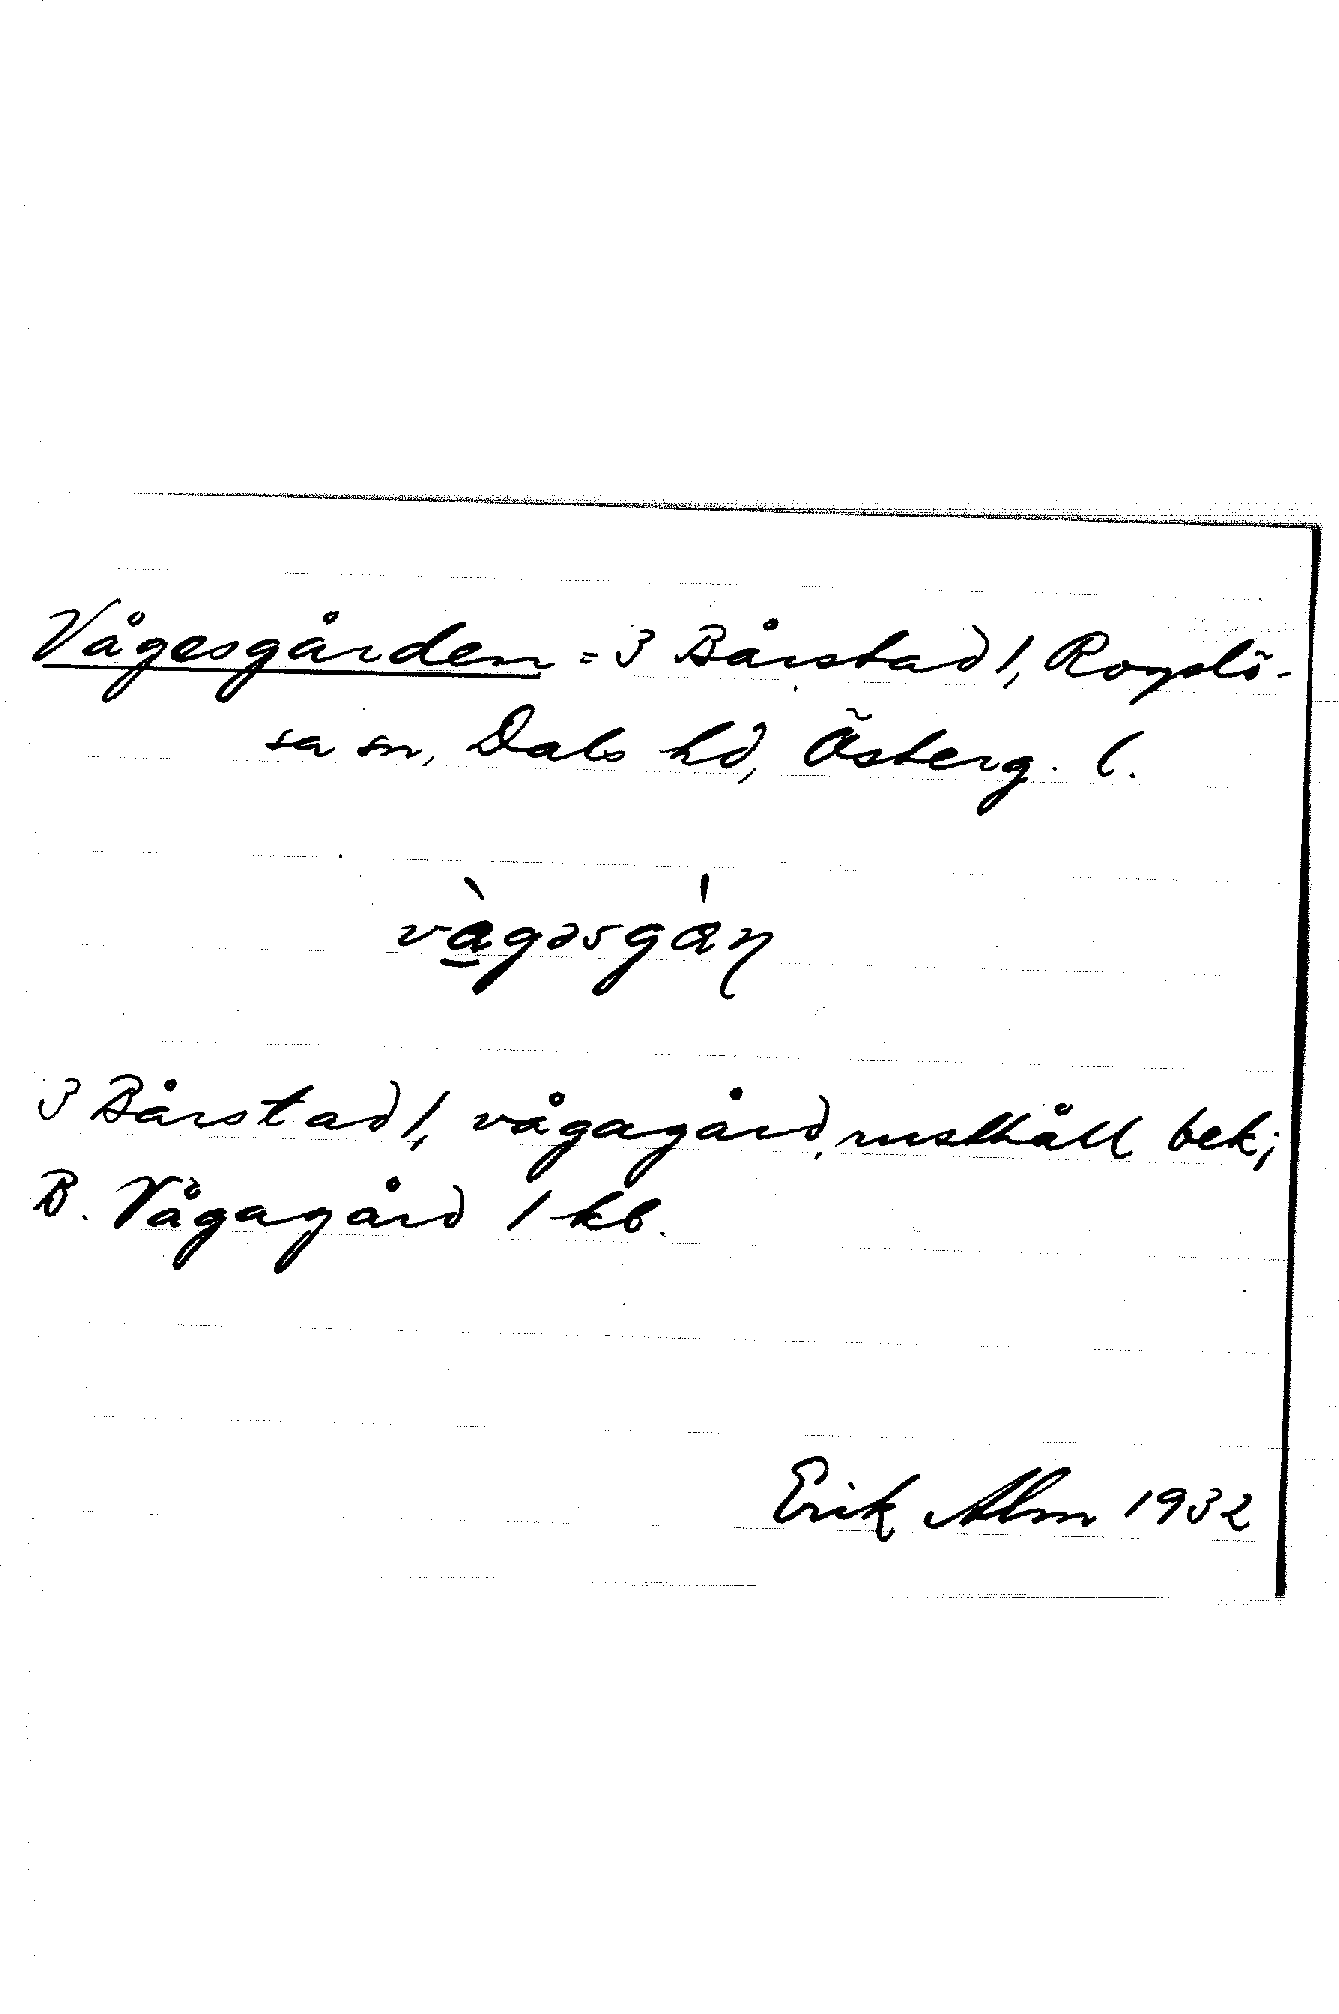 Vågesgården = 3 Bårstad 1, Rogslö-
sa sn, Dals hd, Österg. l.
vàgəsgán
3 Bårstad 1, vågagård, rusthåll bek;
B. Vågagård 1 kb.
Erik Alm 1932